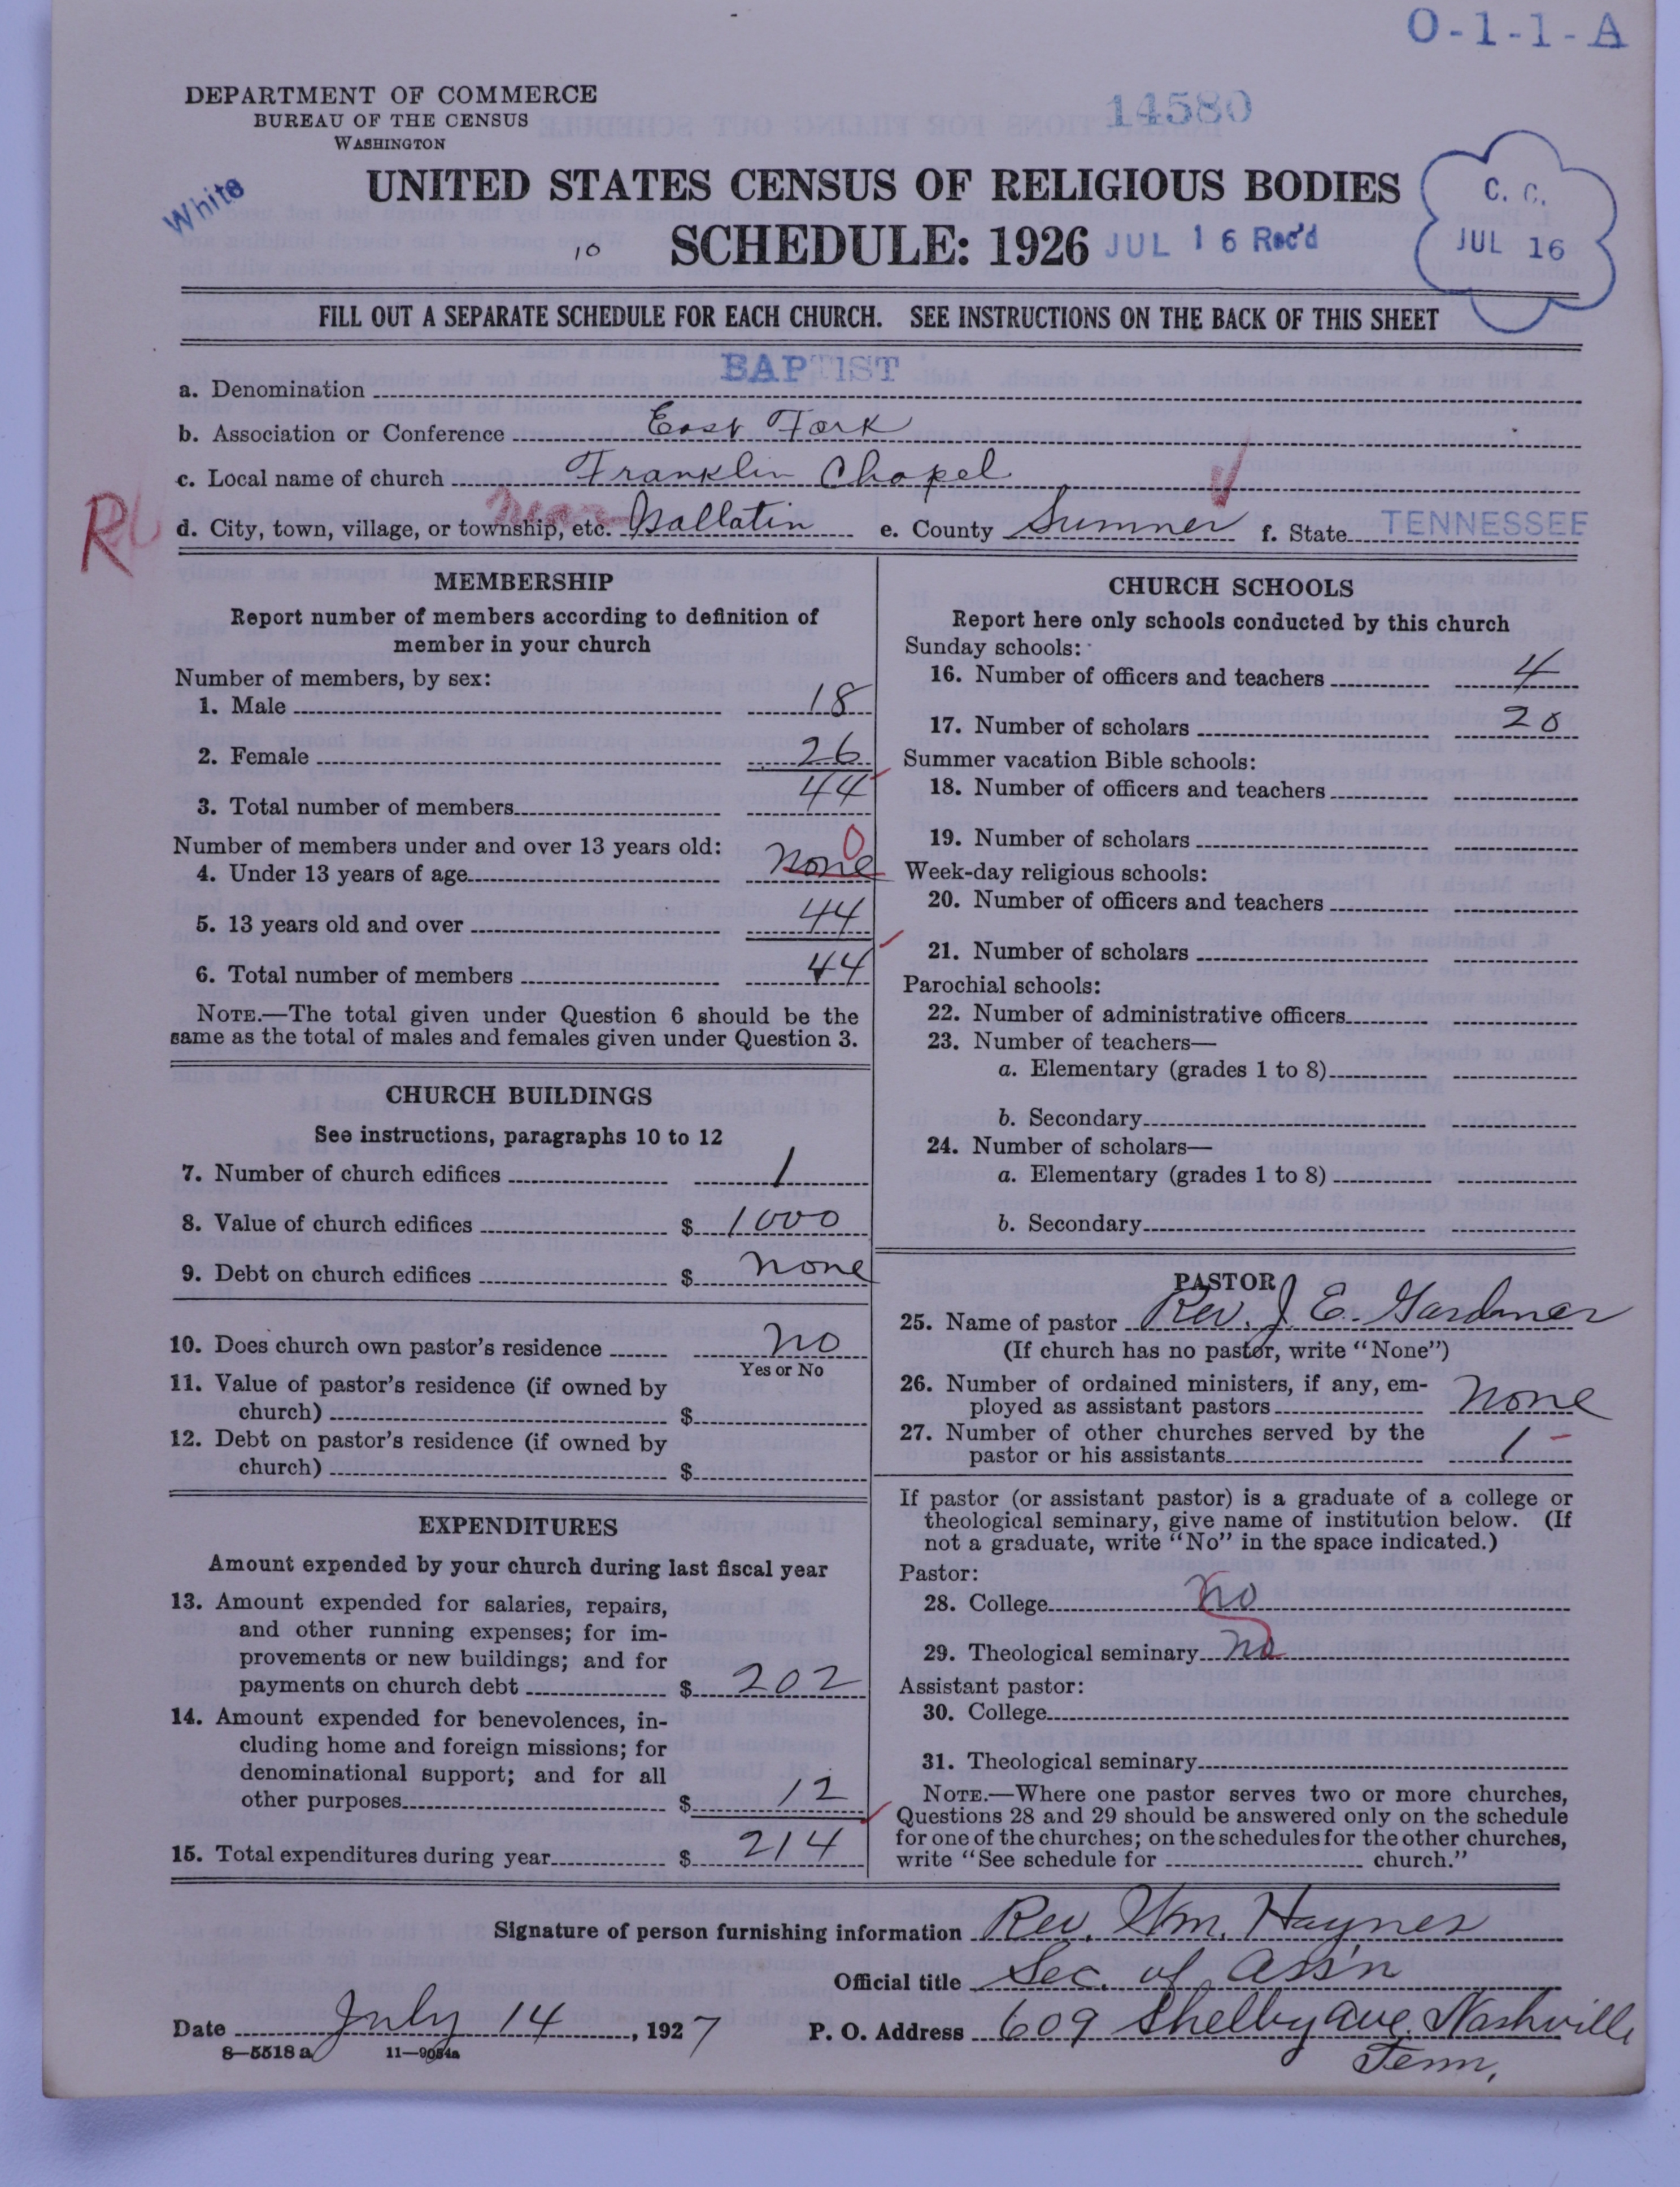 O-1-1-A
DEPARTMENT OF COMMERCE
BUREAU OF THE CENSUS
WASHINGTON
14580
White
UNITED STATES CENSUS OF RELIGIOUS BODIES
10 SCHEDULE: 1926 JUL 16 Rec'd
C. C.
JUL 16
FILL OUT A SEPARATE SCHEDULE FOR EACH CHURCH. SEE INSTRUCTIONS ON THE BACK OF THIS SHEET
a. Denomination BAPTIST
b. Association or Conference East Fork
c. Local name of church Franklin Chapel
d. City, town, village, or township, etc. near Gallatin e. County Sumner f. State TENNESSEE
MEMBERSHIP
Report number of members according to definition of
member in your church
Number of members, by sex:
1. Male 18
2. Female 26
3. Total number of members 44
Number of members under and over 13 years old:
4. Under 13 years of age none 0
5. 13 years old and over 44
6. Total number of members 44
NOTE.—The total given under Question 6 should be the
same as the total of males and females given under Question 3.
CHURCH BUILDINGS
See instructions, paragraphs 10 to 12
7. Number of church edifices 1
8. Value of church edifices $ 1000
9. Debt on church edifices $ none
10. Does church own pastor's residence no
Yes or No
11. Value of pastor's residence (if owned by
church) $
12. Debt on pastor's residence (if owned by
church) $
EXPENDITURES
Amount expended by your church during last fiscal year
13. Amount expended for salaries, repairs,
and other running expenses; for im-
provements or new buildings; and for
payments on church debt $ 202
14. Amount expended for benevolences, in-
cluding home and foreign missions; for
denominational support; and for all
other purposes $ 12
15. Total expenditures during year $ 214
CHURCH SCHOOLS
Report here only schools conducted by this church
Sunday schools:
16. Number of officers and teachers 4
17. Number of scholars 20
Summer vacation Bible schools:
18. Number of officers and teachers
19. Number of scholars
Week-day religious schools:
20. Number of officers and teachers
21. Number of scholars
Parochial schools:
22. Number of administrative officers
23. Number of teachers—
a. Elementary (grades 1 to 8)
b. Secondary
24. Number of scholars—
a. Elementary (grades 1 to 8)
b. Secondary
PASTOR
25. Name of pastor Rev. J. E. Gardner
(If church has no pastor, write "None")
26. Number of ordained ministers, if any, em-
ployed as assistant pastors none
27. Number of other churches served by the
pastor or his assistants 1
If pastor (or assistant pastor) is a graduate of a college or
theological seminary, give name of institution below. (If
not a graduate, write "No" in the space indicated.)
Pastor:
28. College no
29. Theological seminary no
Assistant pastor:
30. College
31. Theological seminary
NOTE.—Where one pastor serves two or more churches,
Questions 28 and 29 should be answered only on the schedule
for one of the churches; on the schedules for the other churches,
write "See schedule for church."
Signature of person furnishing information Rev. Wm. Haynes
Official title Sec. of Ass'n
Date July 14, 1927 P. O. Address 609 Shelby ave. Nashville
Tenn.
8—5518 a 11—9054a